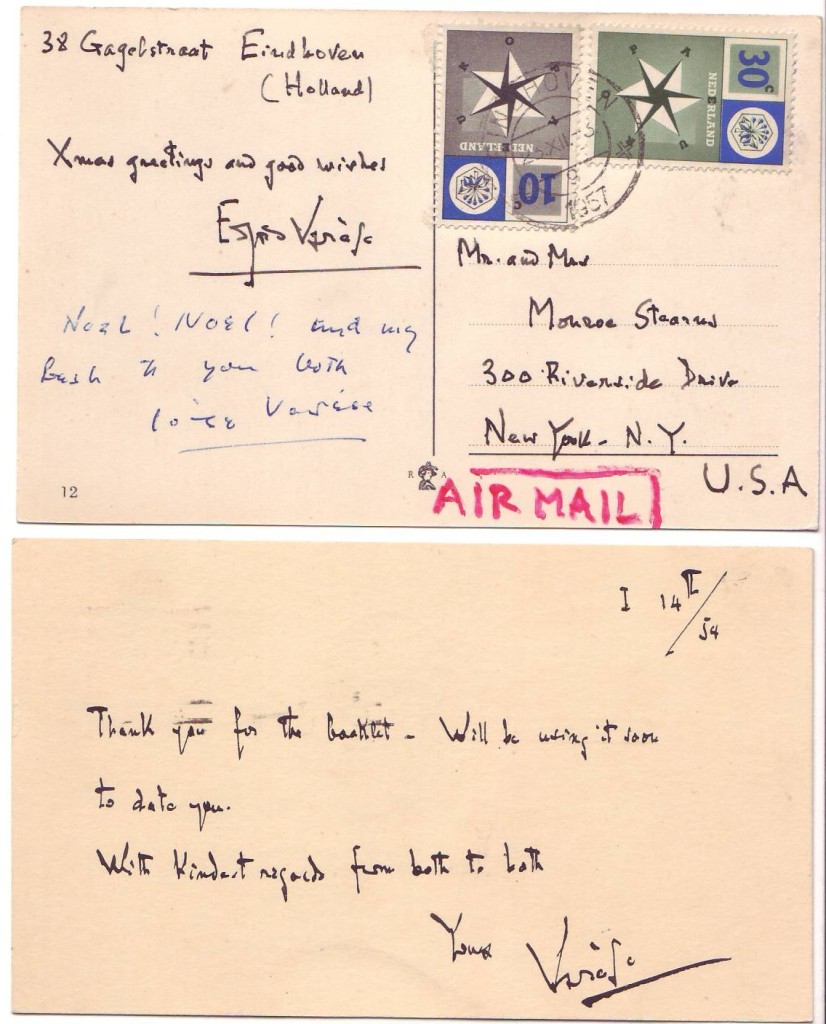 38 Gagelstraat Eindhoven
(Holland)
Xmas greetings and good wishes
Varèse
Noel! Noel! and my
Best to you both
Louise Varèse
12
EUROPA
NEDERLAND
10 c
EUROPA
NEDERLAND
30 c
EINDHOVEN
XII
1957
Mr. and Mrs
Monroe Stearns
300 Riverside Drive
New York - N.Y.
U.S.A
R A
AIR MAIL
I 14th/54
Thank you for the booklet - Will be using it soon
to date you.
With kindest regards from both to both
Yours Varèse